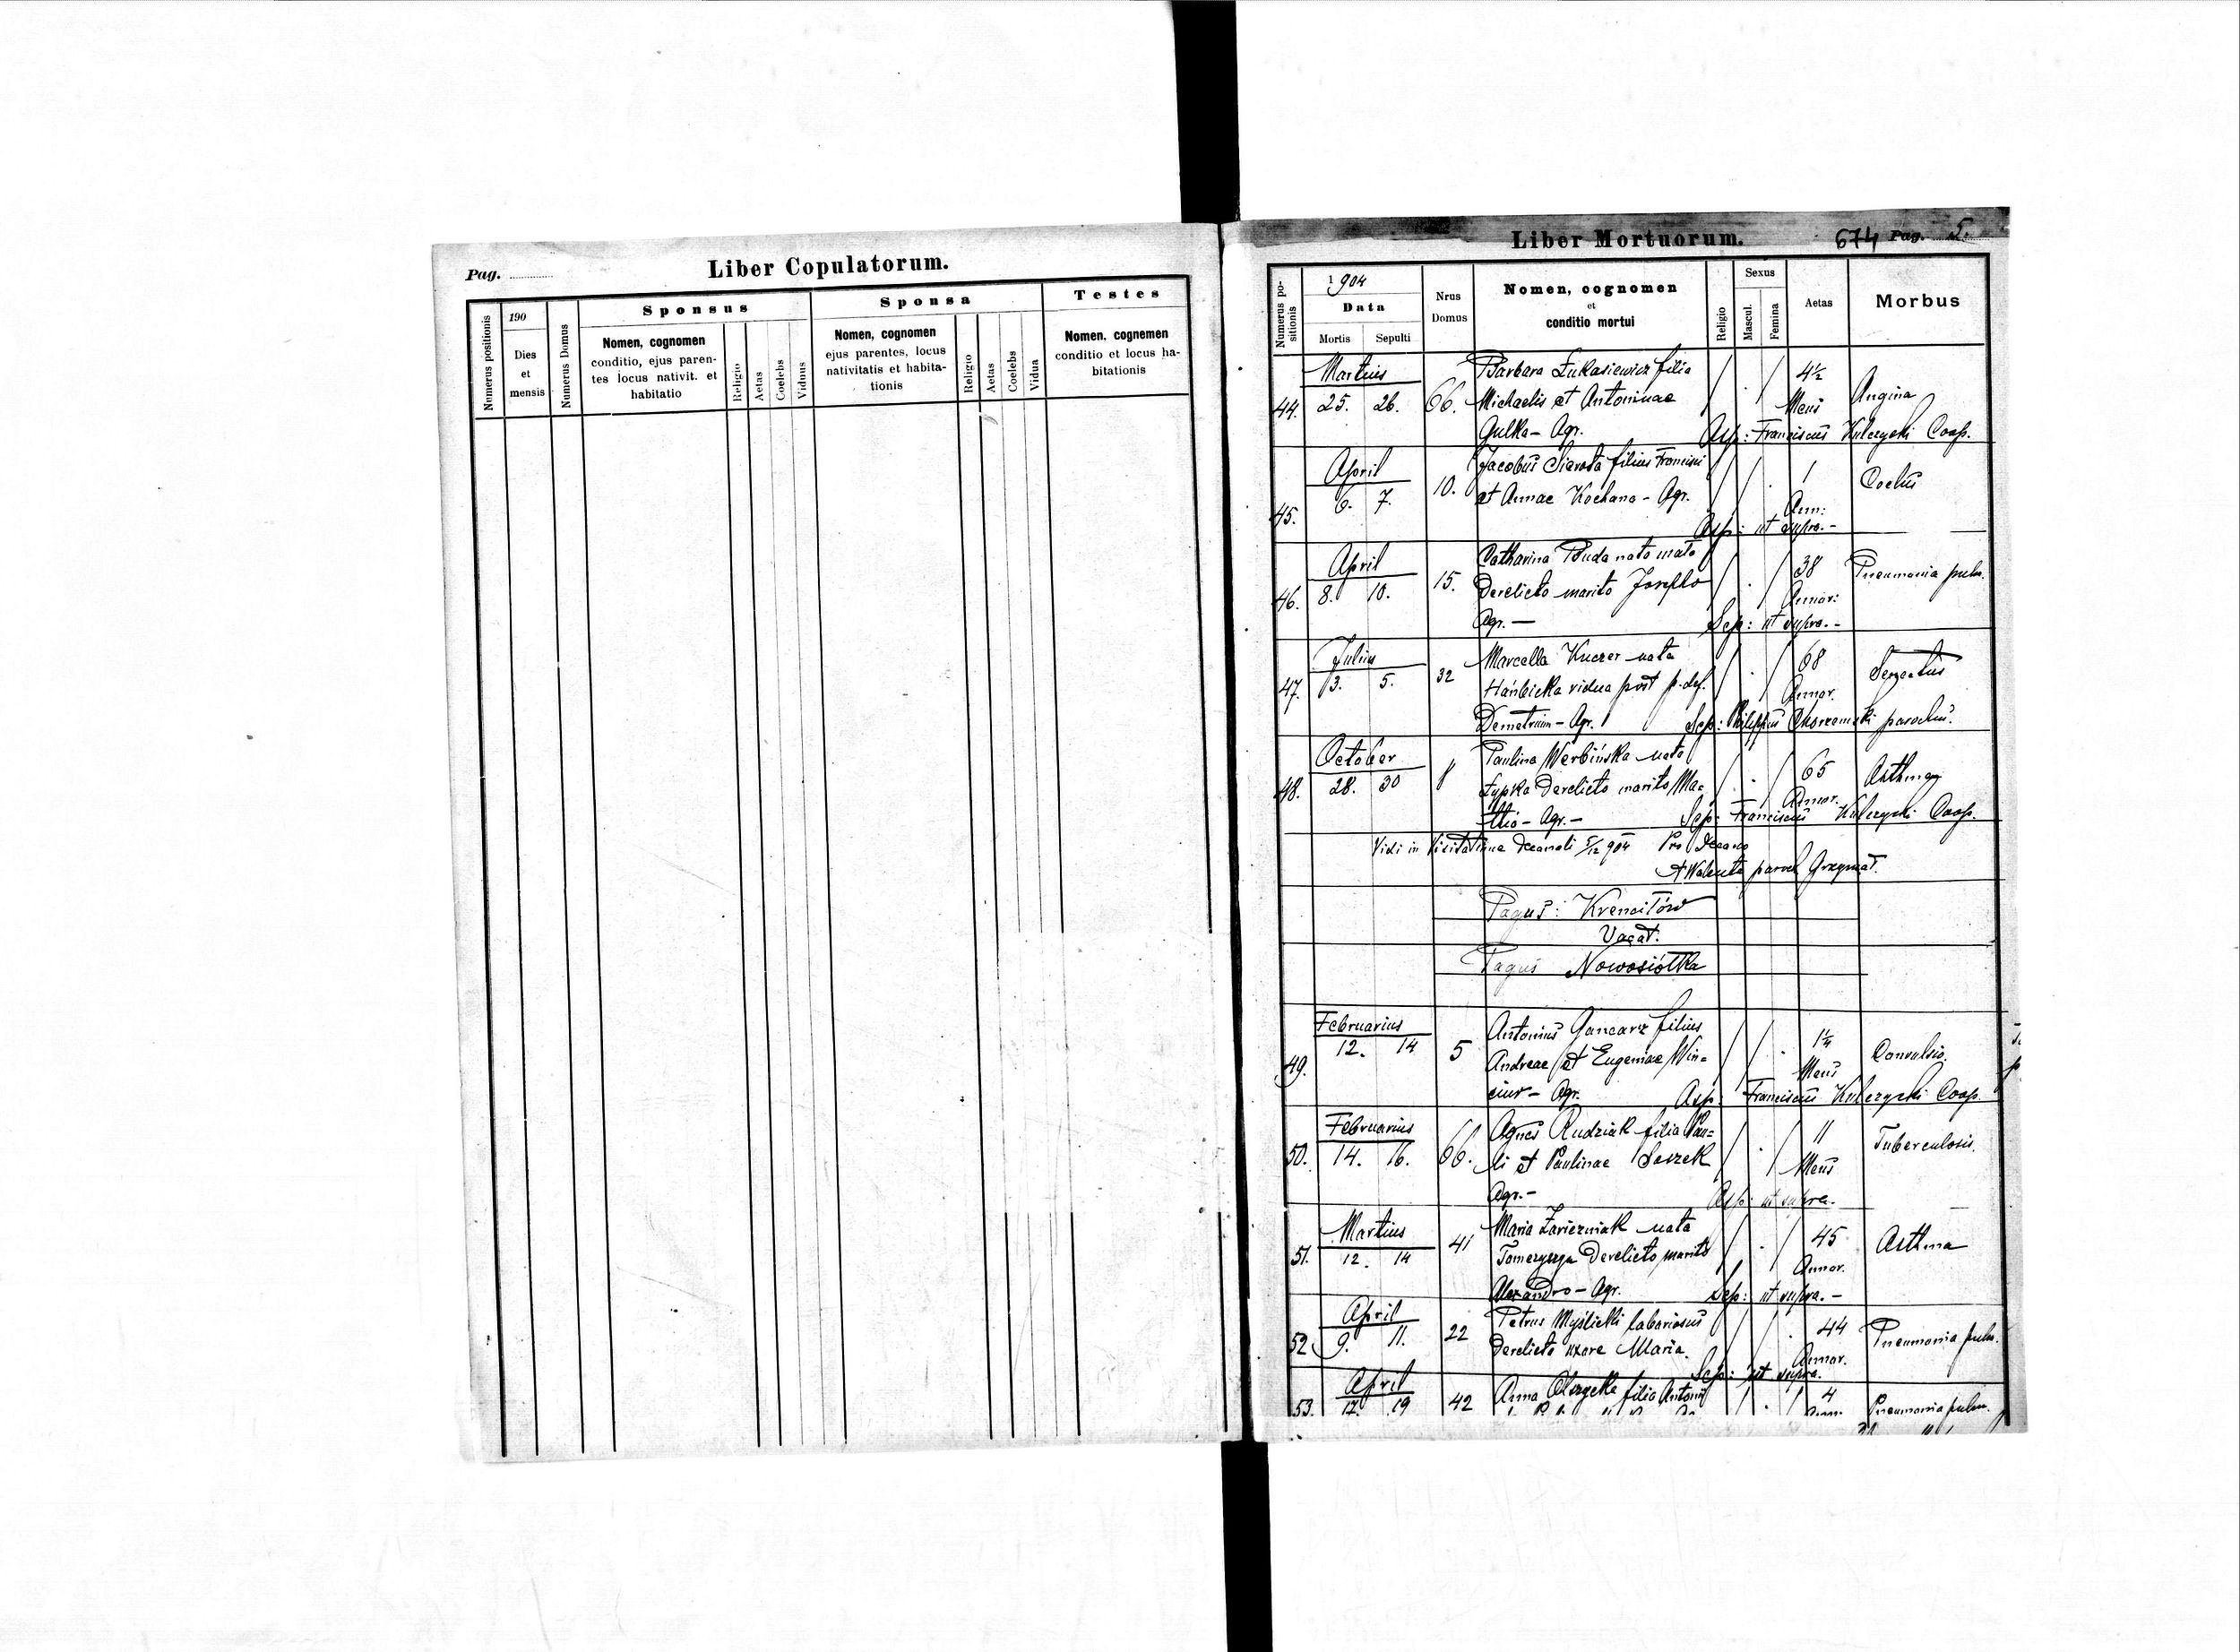 Pag.
Liber Copulatorum.
Numerus positionis
190
Dies
et
mensis
Numerus Domus
Sponsus
Nomen, cognomen
conditio, ejus paren-
tes locus nativit. et
habitatio
Religio
Aetas
Coelebs
Viduus
Sponsa
Nomen, cognomen
ejus parentes, locus
nativitatis et habita-
tionis
Religio
Aetas
Coelebs
Vidua
Testes
Nomen, cognemen
conditio et locus ha-
bitationis
Liber Mortuorum.
674 Pag. 5.
Numerus po-
sitionis
1904
Data
Mortis Sepulti
Nrus
Domus
Nomen, cognomen
et
conditio mortui
Religio
Sexus
Mascul.
Femina
Aetas
Morbus
44. Martius 25. 26. 66.
Barbara Łukasiewicz filia
Michaelis et Antoninae
Gulka - Agr.
4½ Mens Angina
Asp: Franciscus Kulczycki Coop.
45. April 6. 7. 10.
Jacobus filius Francisci
et Annae Kochano - Agr.
1 Ann:
Asp: ut supra. -
46. April 8. 10. 15.
Catharina Buda nata
Derelicto marito Josepho
Agr. -
38 Annor: Pneumonia pulm.
Sep: ut supra. -
47. Julius 3. 5. 32
Marcella Kuczer nata
vidua post p. def.
Demetrium - Agr.
68 Annor.
Sep: Philippus parochus.
48. October 28. 30 8
Paulina Werbińska nata
Łypka Derelicto marito Ma=
thio - Agr. -
65 Annor. Asthma
Sep: Franciscus Kulczycki Coop.
Vidi in Visitatione Decanali 5/12 904 Pro Decano
paroch Grzymał.
Pagus: Krenciłów
Vacat.
Pagus Nowosiółka
49. Februarius 12. 14 5
Antonius Gancarz filius
Andreae et Eugeniae Win=
ciur - Agr.
1¼ Mens Convulsio.
Asp. Franciscus Kulczycki Coop.
50. Februarius 14. 16. 66.
Agnes Rudziak filia Pau=
li et Paulinae
Agr. -
11 Mens Tuberculosis.
Asp: ut supra.
51. Martius 12. 14 41
Maria nata
Derelicto marito
Alexandro - Agr.
45 Annor. Asthma
Sep: ut supra. -
52. April 9. 11. 22
Petrus Myślicki laboriosus
Derelicta uxore Maria.
44 Annor. Pneumonia pulm.
Sep: ut supra.
53. April 17. 19 42
Anna filia Antonii
4 Pneumonia pulm.